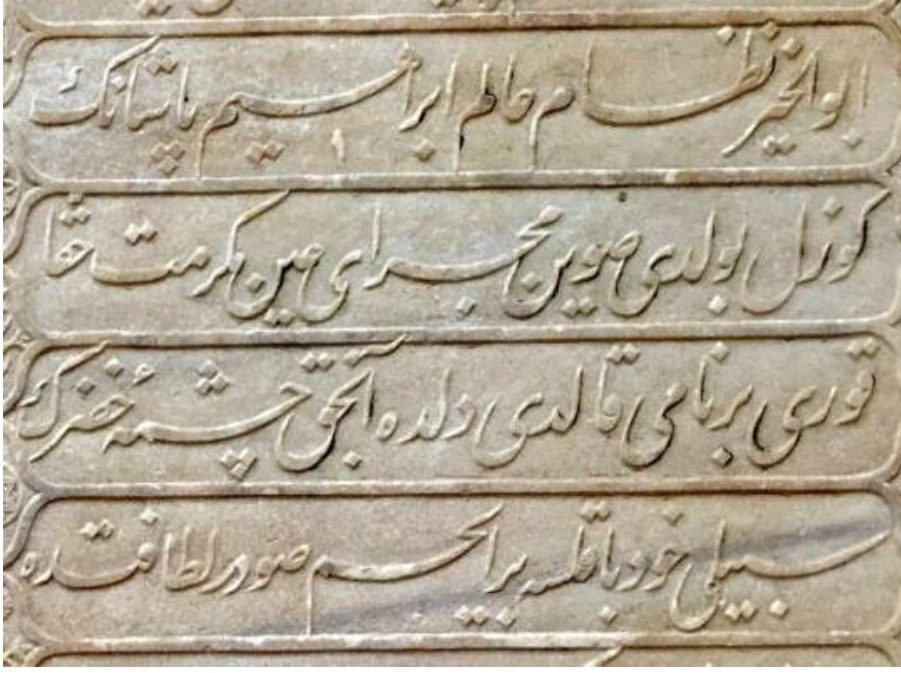 ابوالخير نظام عالم ابراهيم پاشانك
كوزل بولدى صوين مجراى عين مكرمت حقا
قورى برنامى قالدى دلده آنجق چشمۀ خضرك
سبيلى خود باقلسه بر الحم صودر لطافتده